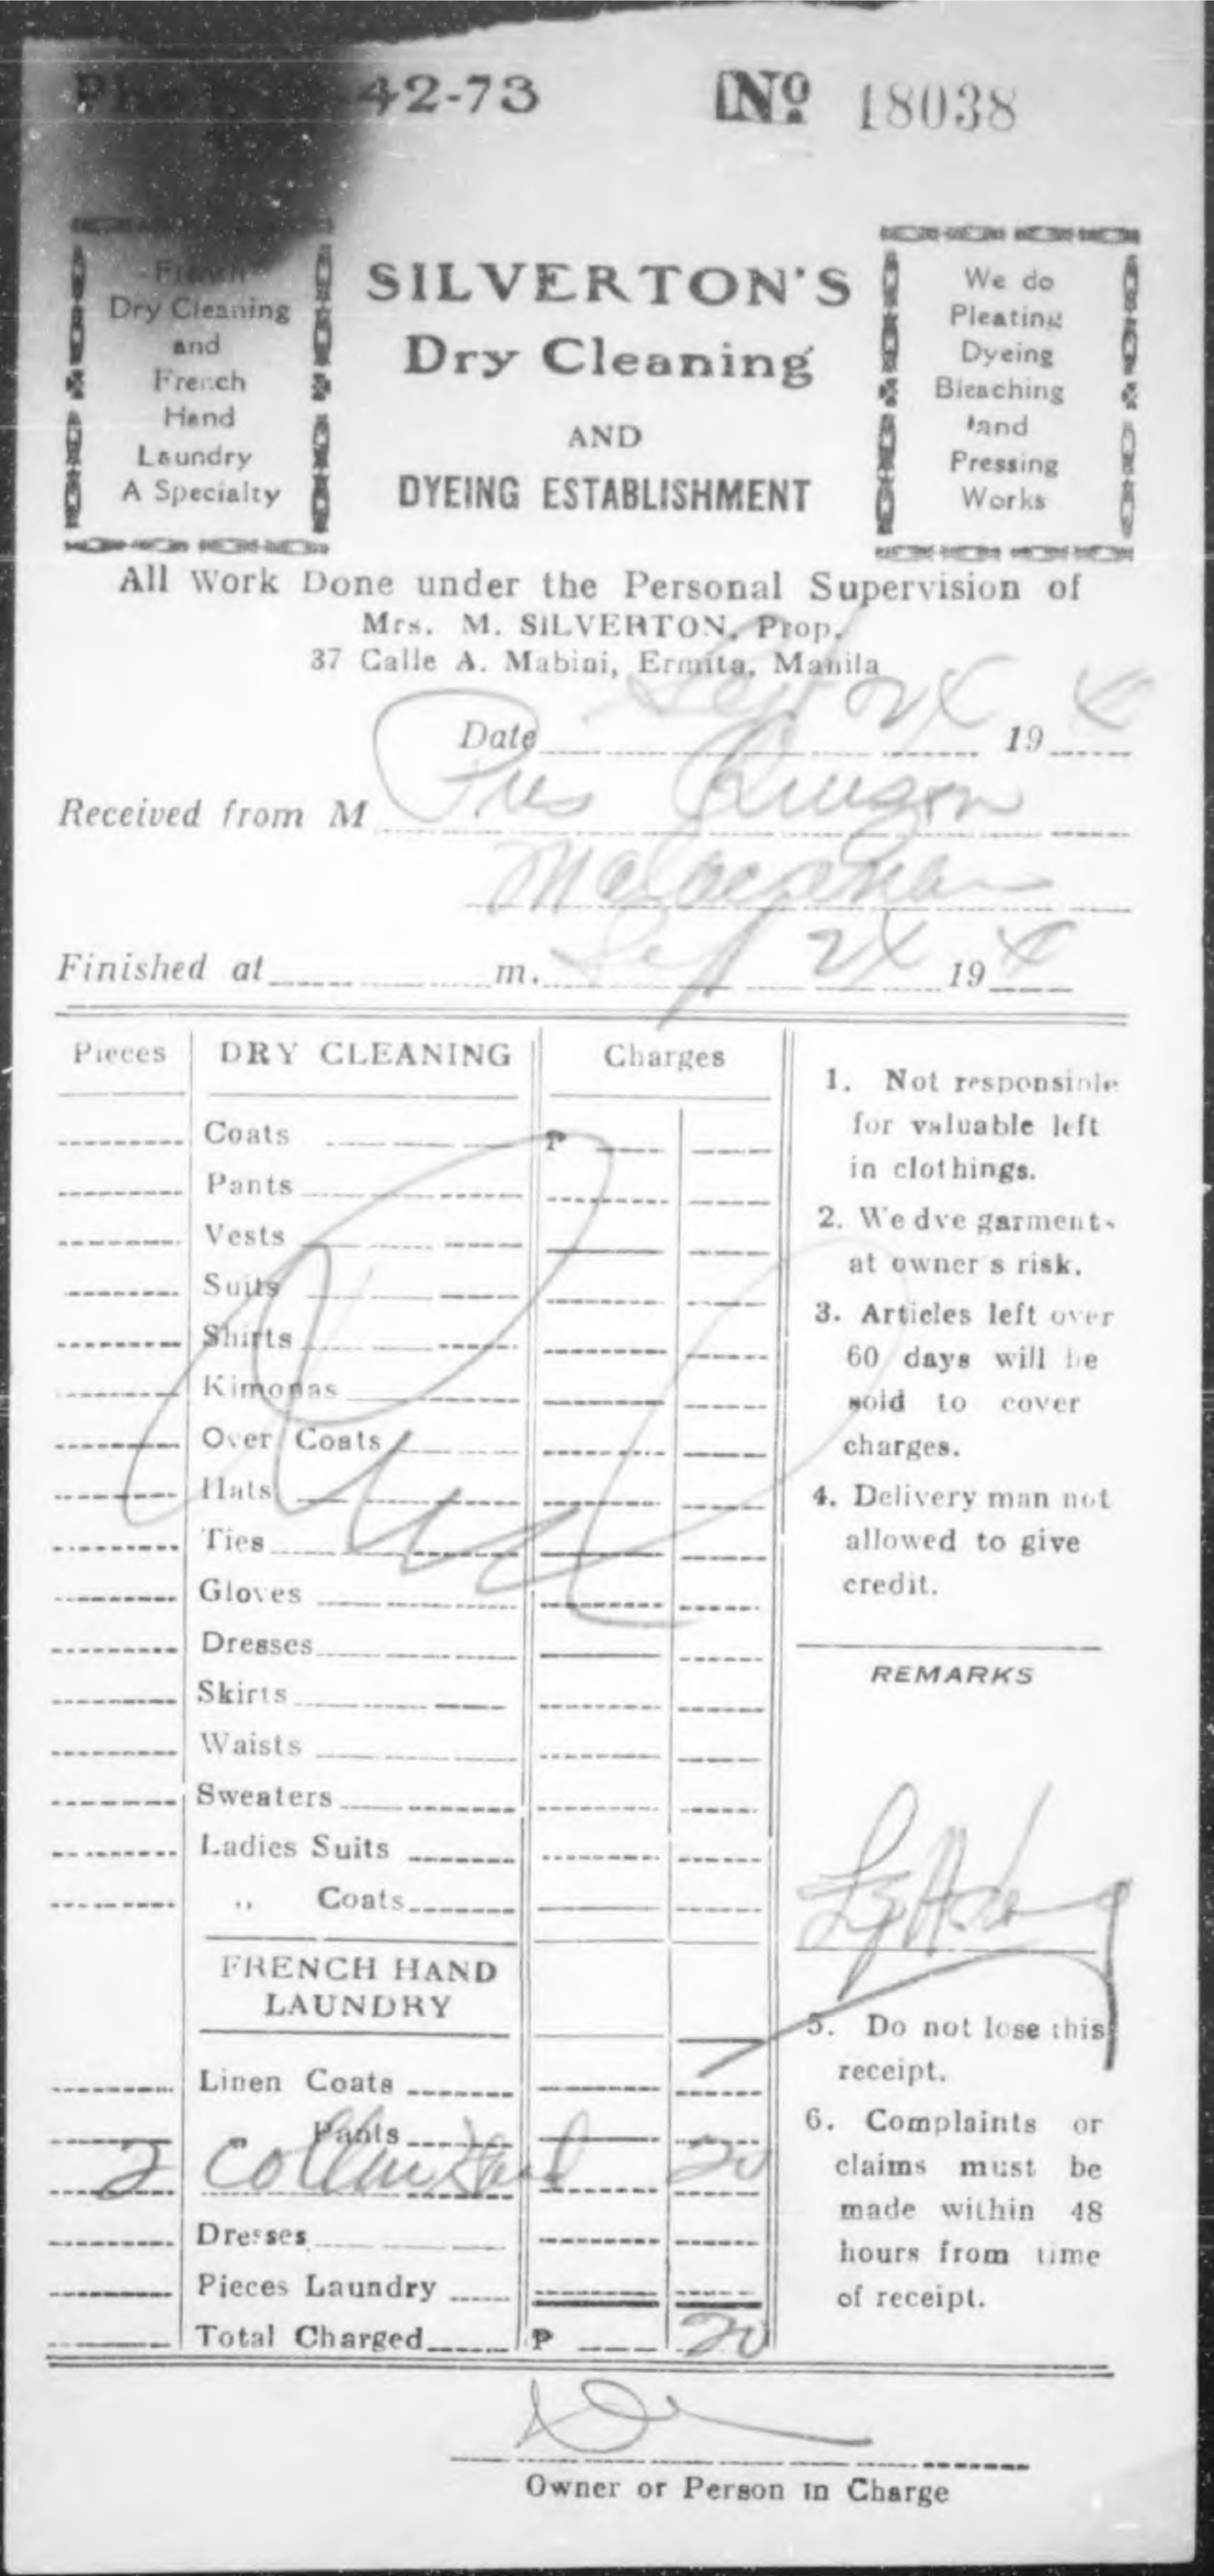 42-73
No 18038
French
Dry Cleaning
and
French
Hand
Laundry
A Specialty
SILVERTON'S
Dry Cleaning
AND
DYEING ESTABLISHMENT
We do
Pleating
Dyeing
Bleaching
and
Pressing
Works
All Work Done under the Personal Supervision of
Mrs. M. SILVERTON, Prop.
37 Calle A. Mabini, Ermita, Manila
Date Sept 19
Received from M Pres Quezon
Malacañan
Finished at m. Sep 19
Pieces DRY CLEANING Charges
Coats ₱
Pants
Vests
Suits
Shirts
Kimonas
Over Coats
Hats
Ties
Gloves
Dresses
Skirts
Waists
Sweaters
Ladies Suits
,, Coats
FRENCH HAND
LAUNDRY
Linen Coats
Pants
2 20
Dresses
Pieces Laundry
Total Charged ₱ 20
1. Not responsible
for valuable left
in clothings.
2. We dye garments
at owner s risk.
3. Articles left over
60 days will be
sold to cover
charges.
4. Delivery man not
allowed to give
credit.
REMARKS
5. Do not lose this
receipt.
6. Complaints or
claims must be
made within 48
hours from time
of receipt.
Owner or Person in Charge